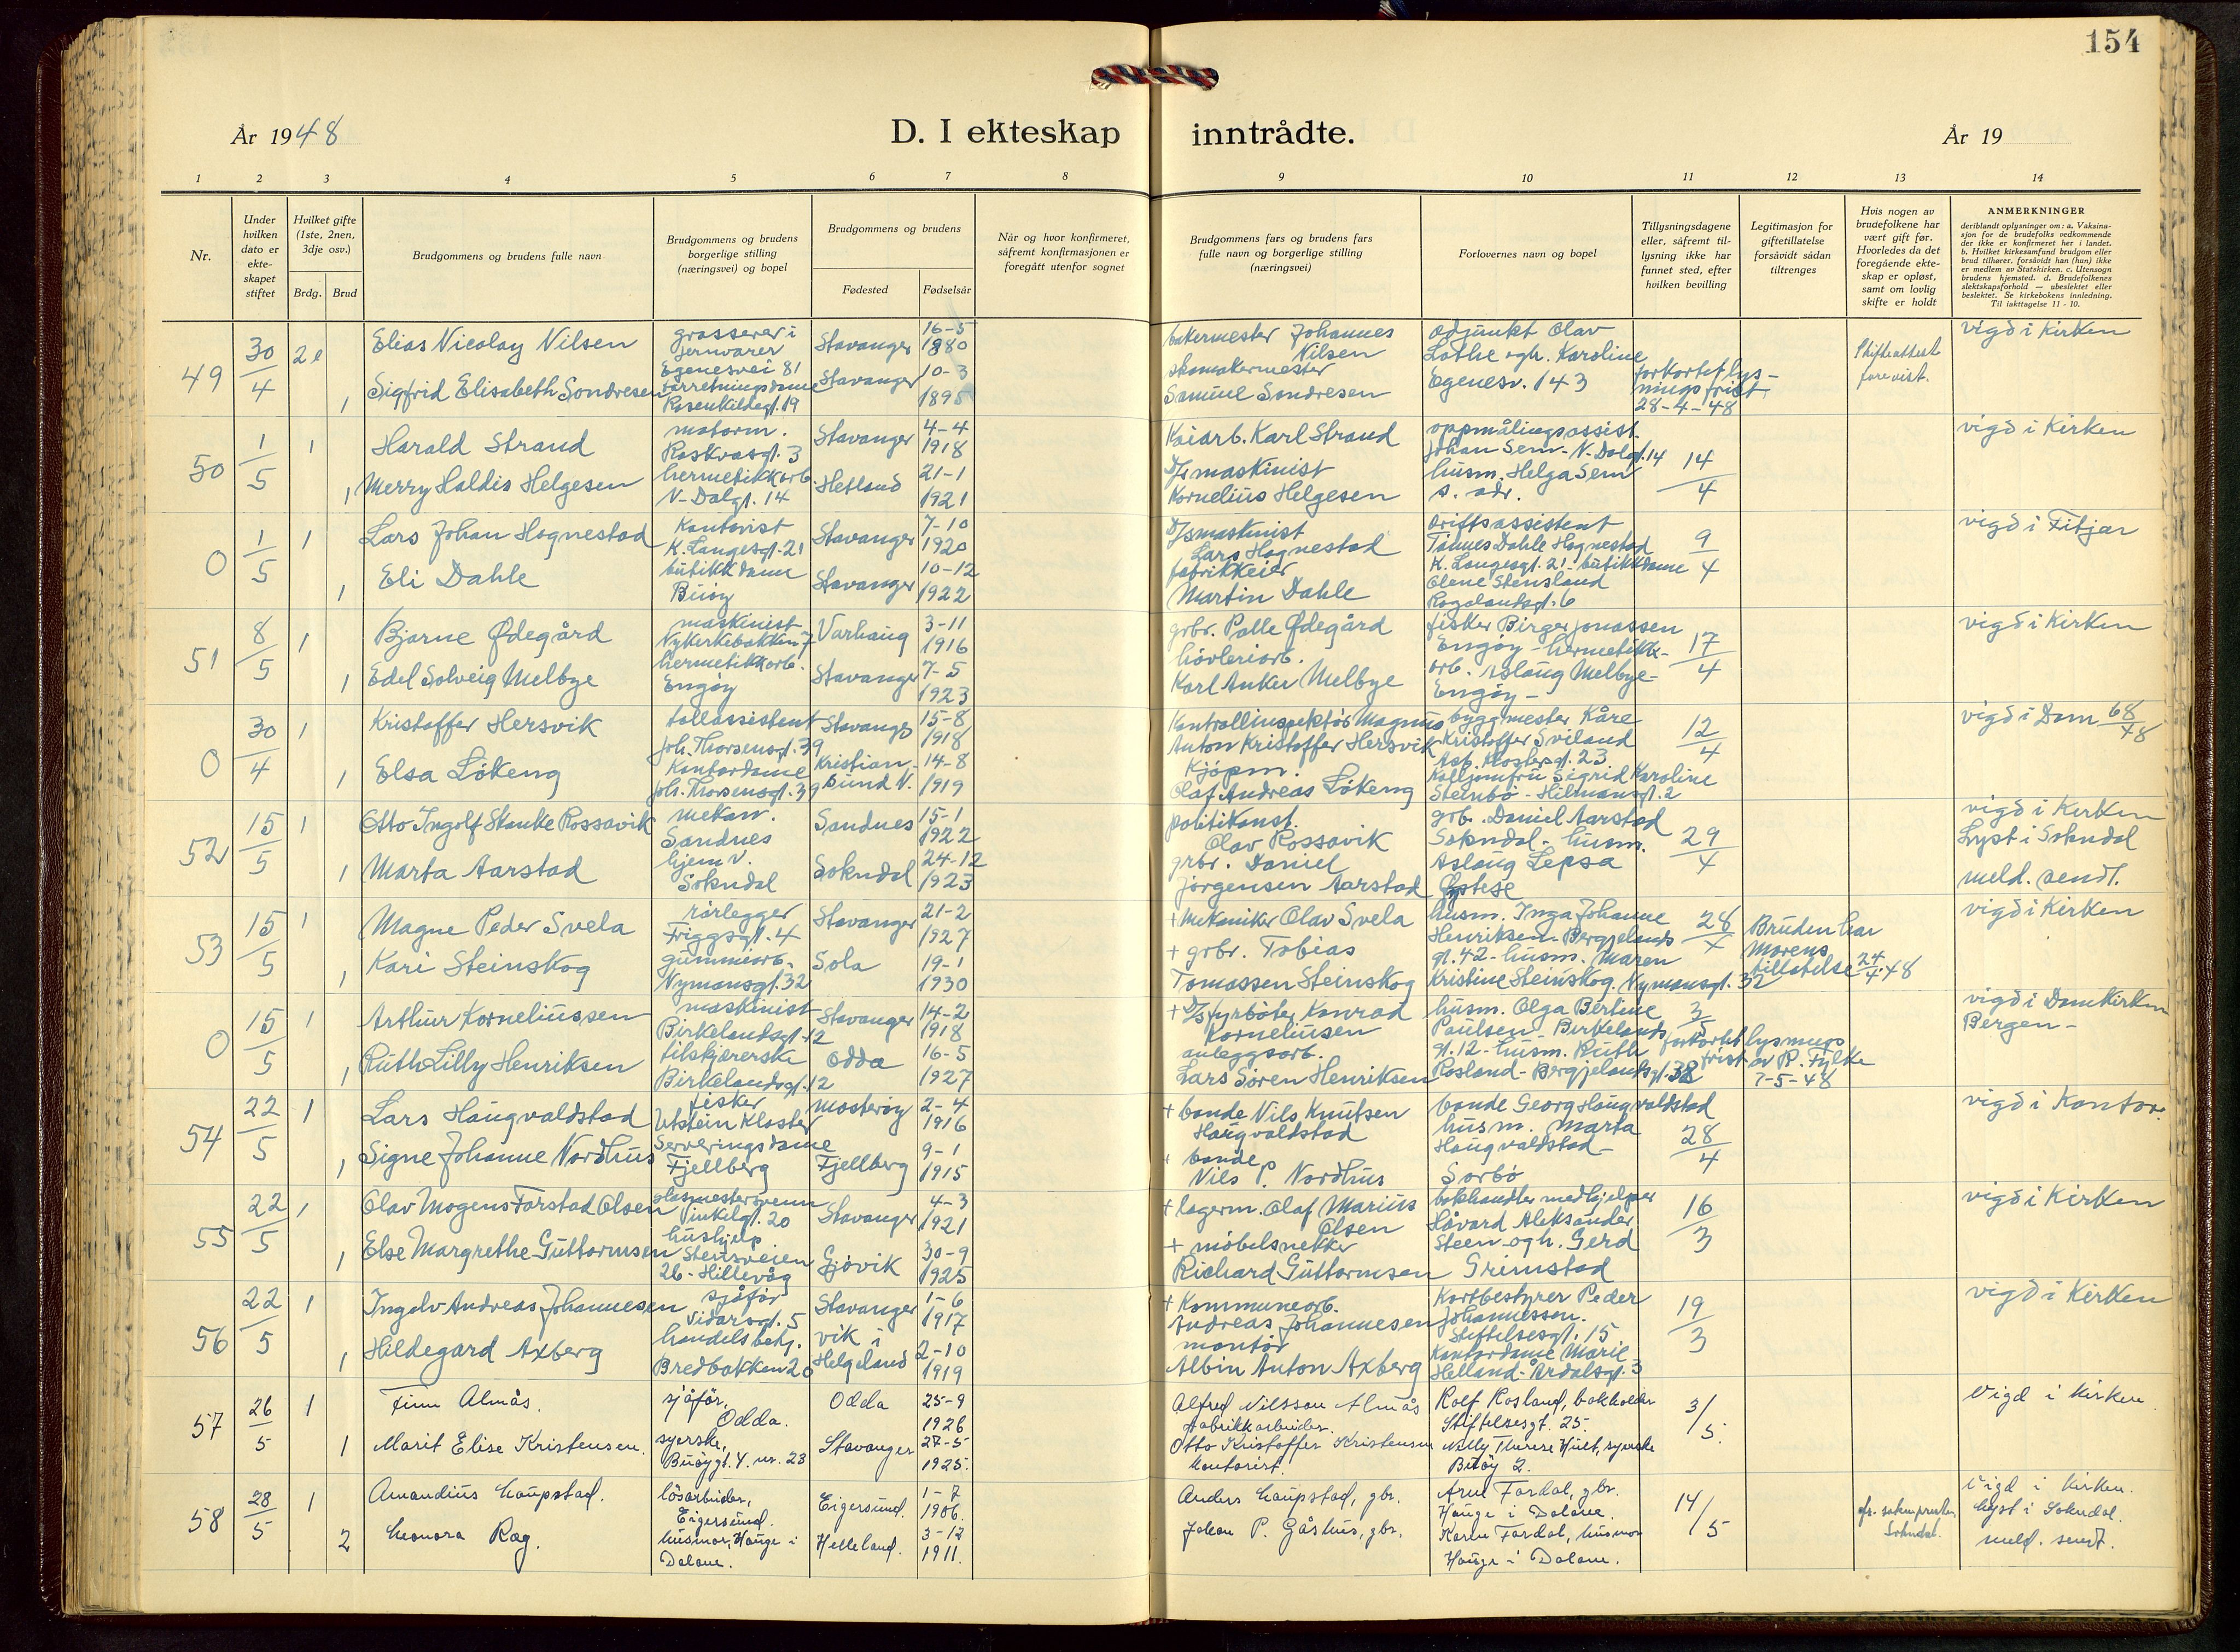 154
År 1948
D. I ekteskap inntrådte.
År 19
1 2 3 4 5 6 7 8 9 10 11 12 13 14
Nr.
Under hvilken dato er ekteskapet stiftet
Hvilket gifte (1ste, 2nen, 3dje osv.)
Brdg. Brud
Brudgommens og brudens fulle navn
Brudgommens og brudens borgerlige stilling (næringsvei) og bopel
Brudgommens og brudens
Fødested Fødselsår
Når og hvor konfirmeret, såfremt konfirmasjonen er foregått utenfor sognet
Brudgommens fars og brudens fars fulle navn og borgerlige stilling (næringsvei)
Forlovernes navn og bopel
Tillysningsdagene eller, såfremt tillysning ikke har funnet sted, efter hvilken bevilling
Legitimasjon for giftetillatelse forsåvidt sådan tiltrenges
Hvis nogen av brudefolkene har vært gift før. Hvorledes da det foregående ekteskap er opløst, samt om lovlig skifte er holdt
ANMERKNINGER
deriblandt oplysninger om: a. Vaksinasjon for de brudefolks vedkommende der ikke er konfirmeret her i landet. b. Hvilket kirkesamfund brudgom eller brud tilhører, forsåvidt han (hun) ikke er medlem av Statskirken. c. Utensogn brudens hjemsted. d. Brudefolkenes slektskapsforhold — ubeslektet eller beslektet. Se kirkebokens innledning. Til iakttagelse 11 - 10.
49 30/4 2e Elias Nicolay Nilsen grosserer i jernvarer Egenesvei 81 Stavanger 16-5 1880 bakermester Johannes Nilsen adjunkt Olav Lothe ogh. Karoline Egenesv. 143 forkortet lysningsfrist 28-4-48 Skifteattest forevist. vigd i Kirken
1 Sigfrid Elisabeth Sondresen forretningsdame Rosenkildegt. 19 Stavanger 10-3 1895 skomakermester Samuel Sondresen
50 1/5 1 Harald Strand motorm. Roskvasgt. 3 Stavanger 4-4 1918 Kaiarb. Karl Strand oppmålingsassist. Johan Sem - N. Dalgt. 14 14/4 vigd i Kirken
1 Merry Haldis Helgesen hermetikkarb. N-Dalgt. 14 Hetland 21-1 1921 D/s maskinist Kornelius Helgesen husm. Helga Sem s. adr.
0 1/5 1 Lars Johan Hognestad Kontorist K. Langesgt. 21 Stavanger 7-10 1920 D/smaskinist Lars Hognestad driftsassistent Tønnes Dahle Hognestad K. Langesgt. 21 - butikkdame 9/4 vigd i Fitjar
1 Eli Dahle butikkdame Buøy Stavanger 10-12 1922 fabrikkeier Martin Dahle Olene Stensland Rogalandsgt. 6
51 8/5 1 Bjarne Ødegård maskinist Nykerkebakken 7 Varhaug 3-11 1916 grbr. Palle Ødegård fisker Birger Jonassen Engøy - hermetikk- 17/4 vigd i Kirken
1 Edel Solveig Melbye hermetikkarb. Engøy Stavanger 7-5 1923 høvleriarb. Karl Anker Melbye arb. Aslaug Melbye - Engøy -
0 30/4 1 Kristoffer Hersvik tollassistent Joh. Thorsensgt. 39 Stavanger 15-8 1918 Kontrollinspektør Magnus Anton Kristoffer Hersvik byggmester Kåre Kristoffer Sviland Asb. Klostersgt. 23 12/4 vigd i Dom 68/48
1 Elsa Lökeng Kontordame Joh. Thorsensgt. 39 Kristiansund N. 14-8 1919 Kjöpm. Olaf Andreas Lökeng Sigrid Karoline Steinbö - Hilmarsgt. 2
52 15/5 1 Otto Ingolf Stanke Rossavik mekan. Sandnes Sandnes 15-1 1922 politikonst. Olav Rossavik grb. Daniel Aarstad Sokndal - husm. 29/4 vigd i Kirken Lyst i Sokndal meld. sendt.
1 Marta Aarstad hjemv. Sokndal Sokndal 24-12 1923 grbr. Daniel Jørgensen Aarstad Aslaug Lepsa Øystese
53 15/5 1 Magne Peder Svela rørlegger Friggsgt. 4 Stavanger 21-2 1927 + Mekaniker Olav Svela husm. Inga Johanne Henriksen - Bergjelandsgt. 42 - 28/4 Bruden har morens tillatelse 24/4-48 vigd i Kirken
1 Kari Steinskog gummiarb. Nymansgt. 32 Sola 19-1 1930 + grbr. Tobias Tomassen Steinskog husm. Maren Kristine Steinskog. Nymansgt. 32
0 15/5 1 Arthur Korneliussen maskinist Birkelandsgt. 12 Stavanger 14-2 1918 + D/sfyrbøter Konrad Korneliusen husm. Olga Bertine Paulsen - Birkelandsgt. 12 - 3/5 forkortet lysningsfrist av R. Fylke 7-5-48 vigd i Domkirken Bergen -
1 Ruth Lilly Henriksen tilskjærerske Birkelandsgt. 12 Odda 16-5 1927 anleggsarb. Lars Sören Henriksen husm. Ruth Rosland - Bergjelandsgt. 38
54 22/5 1 Lars Haugvaldstad fisker Utstein Kloster Mosterøy 2-4 1916 + bonde Nils Knutsen Haugvaldstad bonde Georg Haugvaldstad husm. Marta Haugvaldstad - Sörbö 28/4 vigd i Kontor.
1 Signe Johanne Nordhus Serveringsdame Fjellberg Fjellberg 9-1 1915 + bonde Nils P. Nordhus
55 22/5 1 Olav Mogens Forstad Olsen glasmestersvenn Vinkelgt. 20 Stavanger 4-3 1921 + lagerm. Olaf Marius Olsen bokhandler medhjelper Håvard Aleksander Steen ogh. Gerd Grimstad 16/3 vigd i Kirken
1 Else Margrethe Guttormsen hushjelp Steinsveien 26 - Hillevåg Gjövik 30-9 1925 + möbelsnekker Richard Guttormsen
56 22/5 1 Ingolv Andreas Johannesen sjåfør Vidarsgt. 5 Stavanger 1-6 1917 + Kommunearb. Andreas Johannesen Kortbestyrer Peder Johannessen. Stiftelsesgt. 15 19/3 vigd i Kirken
1 Hildegard Axberg handelsbetj. Bredbakken 20 Vik i Helgeland 2-10 1919 montør Albin Anton Axberg Kontordame Marie Helland - Årdalsgt. 3
57 26/5 1 Finn Almås. sjåfør, Odda. Odda 25-9 1926 Alfred Nilsson Almås fabrikkarbeider. Rolf Rosland, bokholder Stiftelsesgt. 25. 3/5. Vigd i Kirken.
1 Marit Elise Kristensen. syerske, Buøygt. 4. nr. 23 Stavanger 27-5 1925. Otto Kristoffer Kristensen Kontorist. Nelly Therese Hult, syerske Buøy 2.
58 28/5 1 Amandius Haupstad. løsarbeider, Eigersund. Eigersund. 1-7 1906. Anders Haupstad, gbr. Arne Fardal, gbr. Hauge i Dalane. 14/5 Vigd i Kirken. lyst i Sokndal. meld. sendt.
2 Leonora Rag. husmor, Hauge i Dalane. Helleland. 3-12 1911. Johan P. Gåshus, gbr. Karen Fardal, husmor Hauge i Dalane. Sokndal.